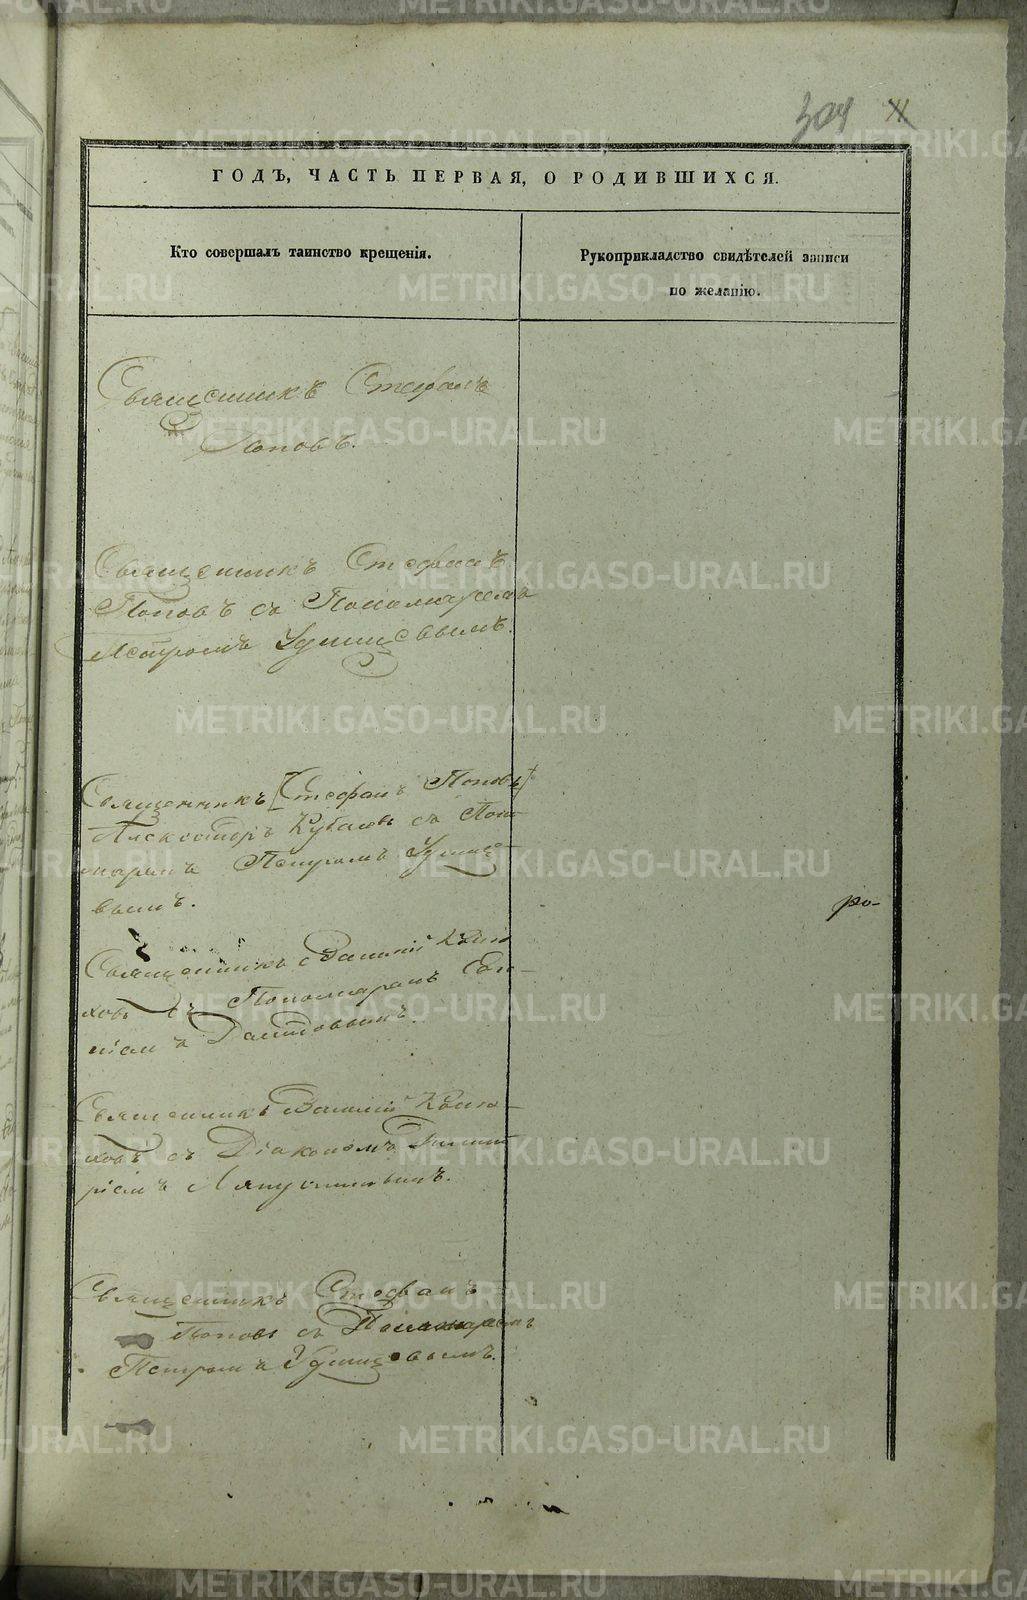 304
ГОДЪ, ЧАСТЬ ПЕРВАЯ, О РОДИВШИХСЯ.
Кто совершалъ таинство крещенія.
Рукоприкладство свидѣтелей записи
по желанію.
Священникъ Стефанъ
Поповъ.
Священникъ Стефанъ
Поповъ съ Пономаремъ
Петромъ Удинцевымъ.
Священникъ [Стефанъ Поповъ]
Александръ съ Поно-
маремъ Петромъ Удинце-
вымъ.
Священникъ Василій
ховъ съ Пономаремъ Ев-
Давидовымъ.
Священникъ Василій
ховъ съ Діакономъ Димит-
ріемъ Ляпустинымъ.
Священникъ Стефанъ
Поповъ съ Пономаремъ
Петромъ Удинцовымъ.
ро-
METRIKI.GASO-URAL.RU